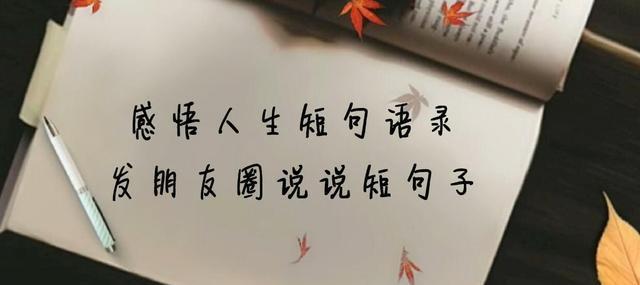 感悟人生短句语录
发朋友圈说说短句子